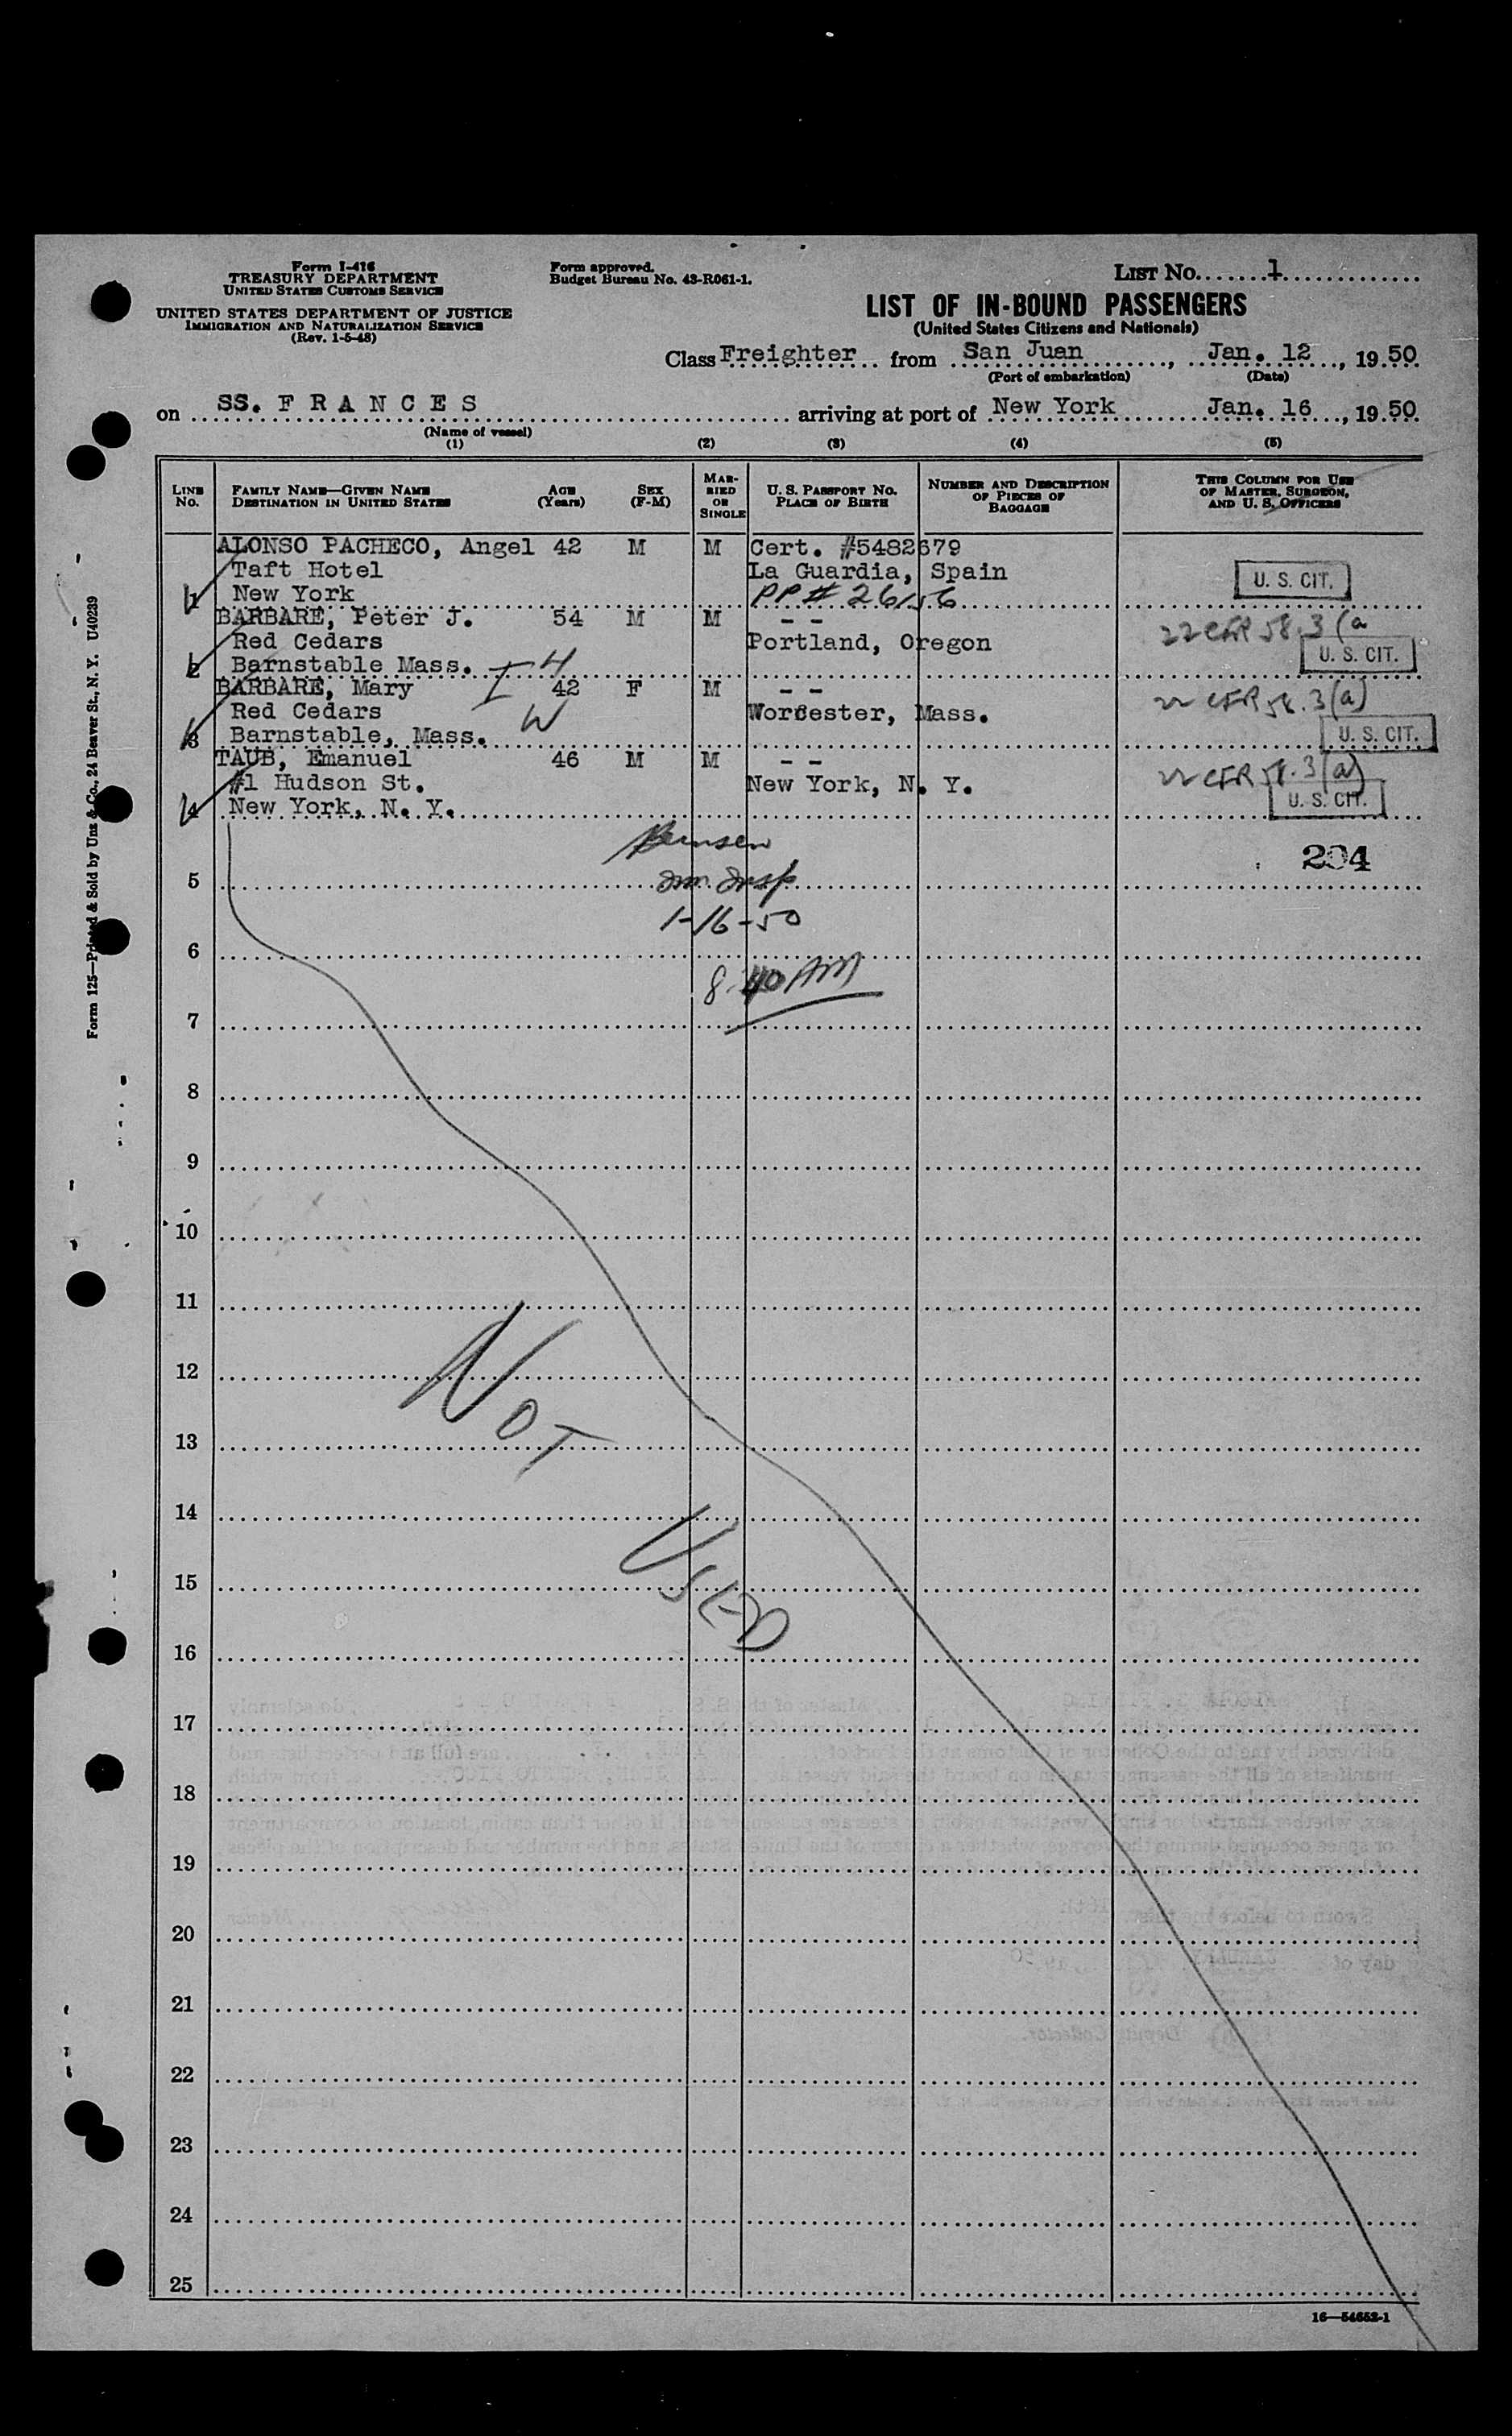 Form I-416
TREASURY DEPARTMENT
UNITED STATES CUSTOMS SERVICE
UNITED STATES DEPARTMENT OF JUSTICE
IMMIGRATION AND NATURALIZATION SERVICE
(Rev. 1-5-48)
Form approved.
Budget Bureau No. 43-R061-1.
LIST No. 1
LIST OF IN-BOUND PASSENGERS
(United States Citizens and Nationals)
Class Freighter from San Juan, Jan. 12, 19 50
(Port of embarkation) (Date)
on SS. F R A N C E S arriving at port of New York Jan. 16, 19 50
(Name of vessel)
(1) (2) (3) (4) (5)
LINE No. FAMILY NAME—GIVEN NAME DESTINATION IN UNITED STATES AGE (Years) SEX (F-M) MARRIED OR SINGLE U. S. PASSPORT NO. PLACE OF BIRTH NUMBER AND DESCRIPTION OF PIECES OF BAGGAGE THIS COLUMN FOR USE OF MASTER, SURGEON, AND U. S. OFFICERS
ALONSO PACHECO, Angel 42 M M Cert. #5482679
Taft Hotel La Guardia, Spain U. S. CIT.
1 New York PP#
BARBARE, Peter J. 54 M M - - 22 CFR 58.3(a
Red Cedars Portland, Oregon U. S. CIT.
2 Barnstable Mass. H
BARBARE, Mary 42 F M - - 22 CFR 58.3(a)
Red Cedars W Worcester, Mass.
3 Barnstable, Mass. U. S. CIT.
TAUB, Emanuel 46 M M - - 22 CFR 58.3(a)
#1 Hudson St. New York, N. Y. U. S. CIT.
4 New York, N. Y.
204
5 Imm. Insp
1-16-50
6
8:40 AM
7
8
9
10
11
12
NOT
13
14
USED
15
16
17
18
19
20
21
22
23
24
25
16—54652-1
Form 125—Printed & Sold by Unz & Co., 24 Beaver St., N. Y. U40239